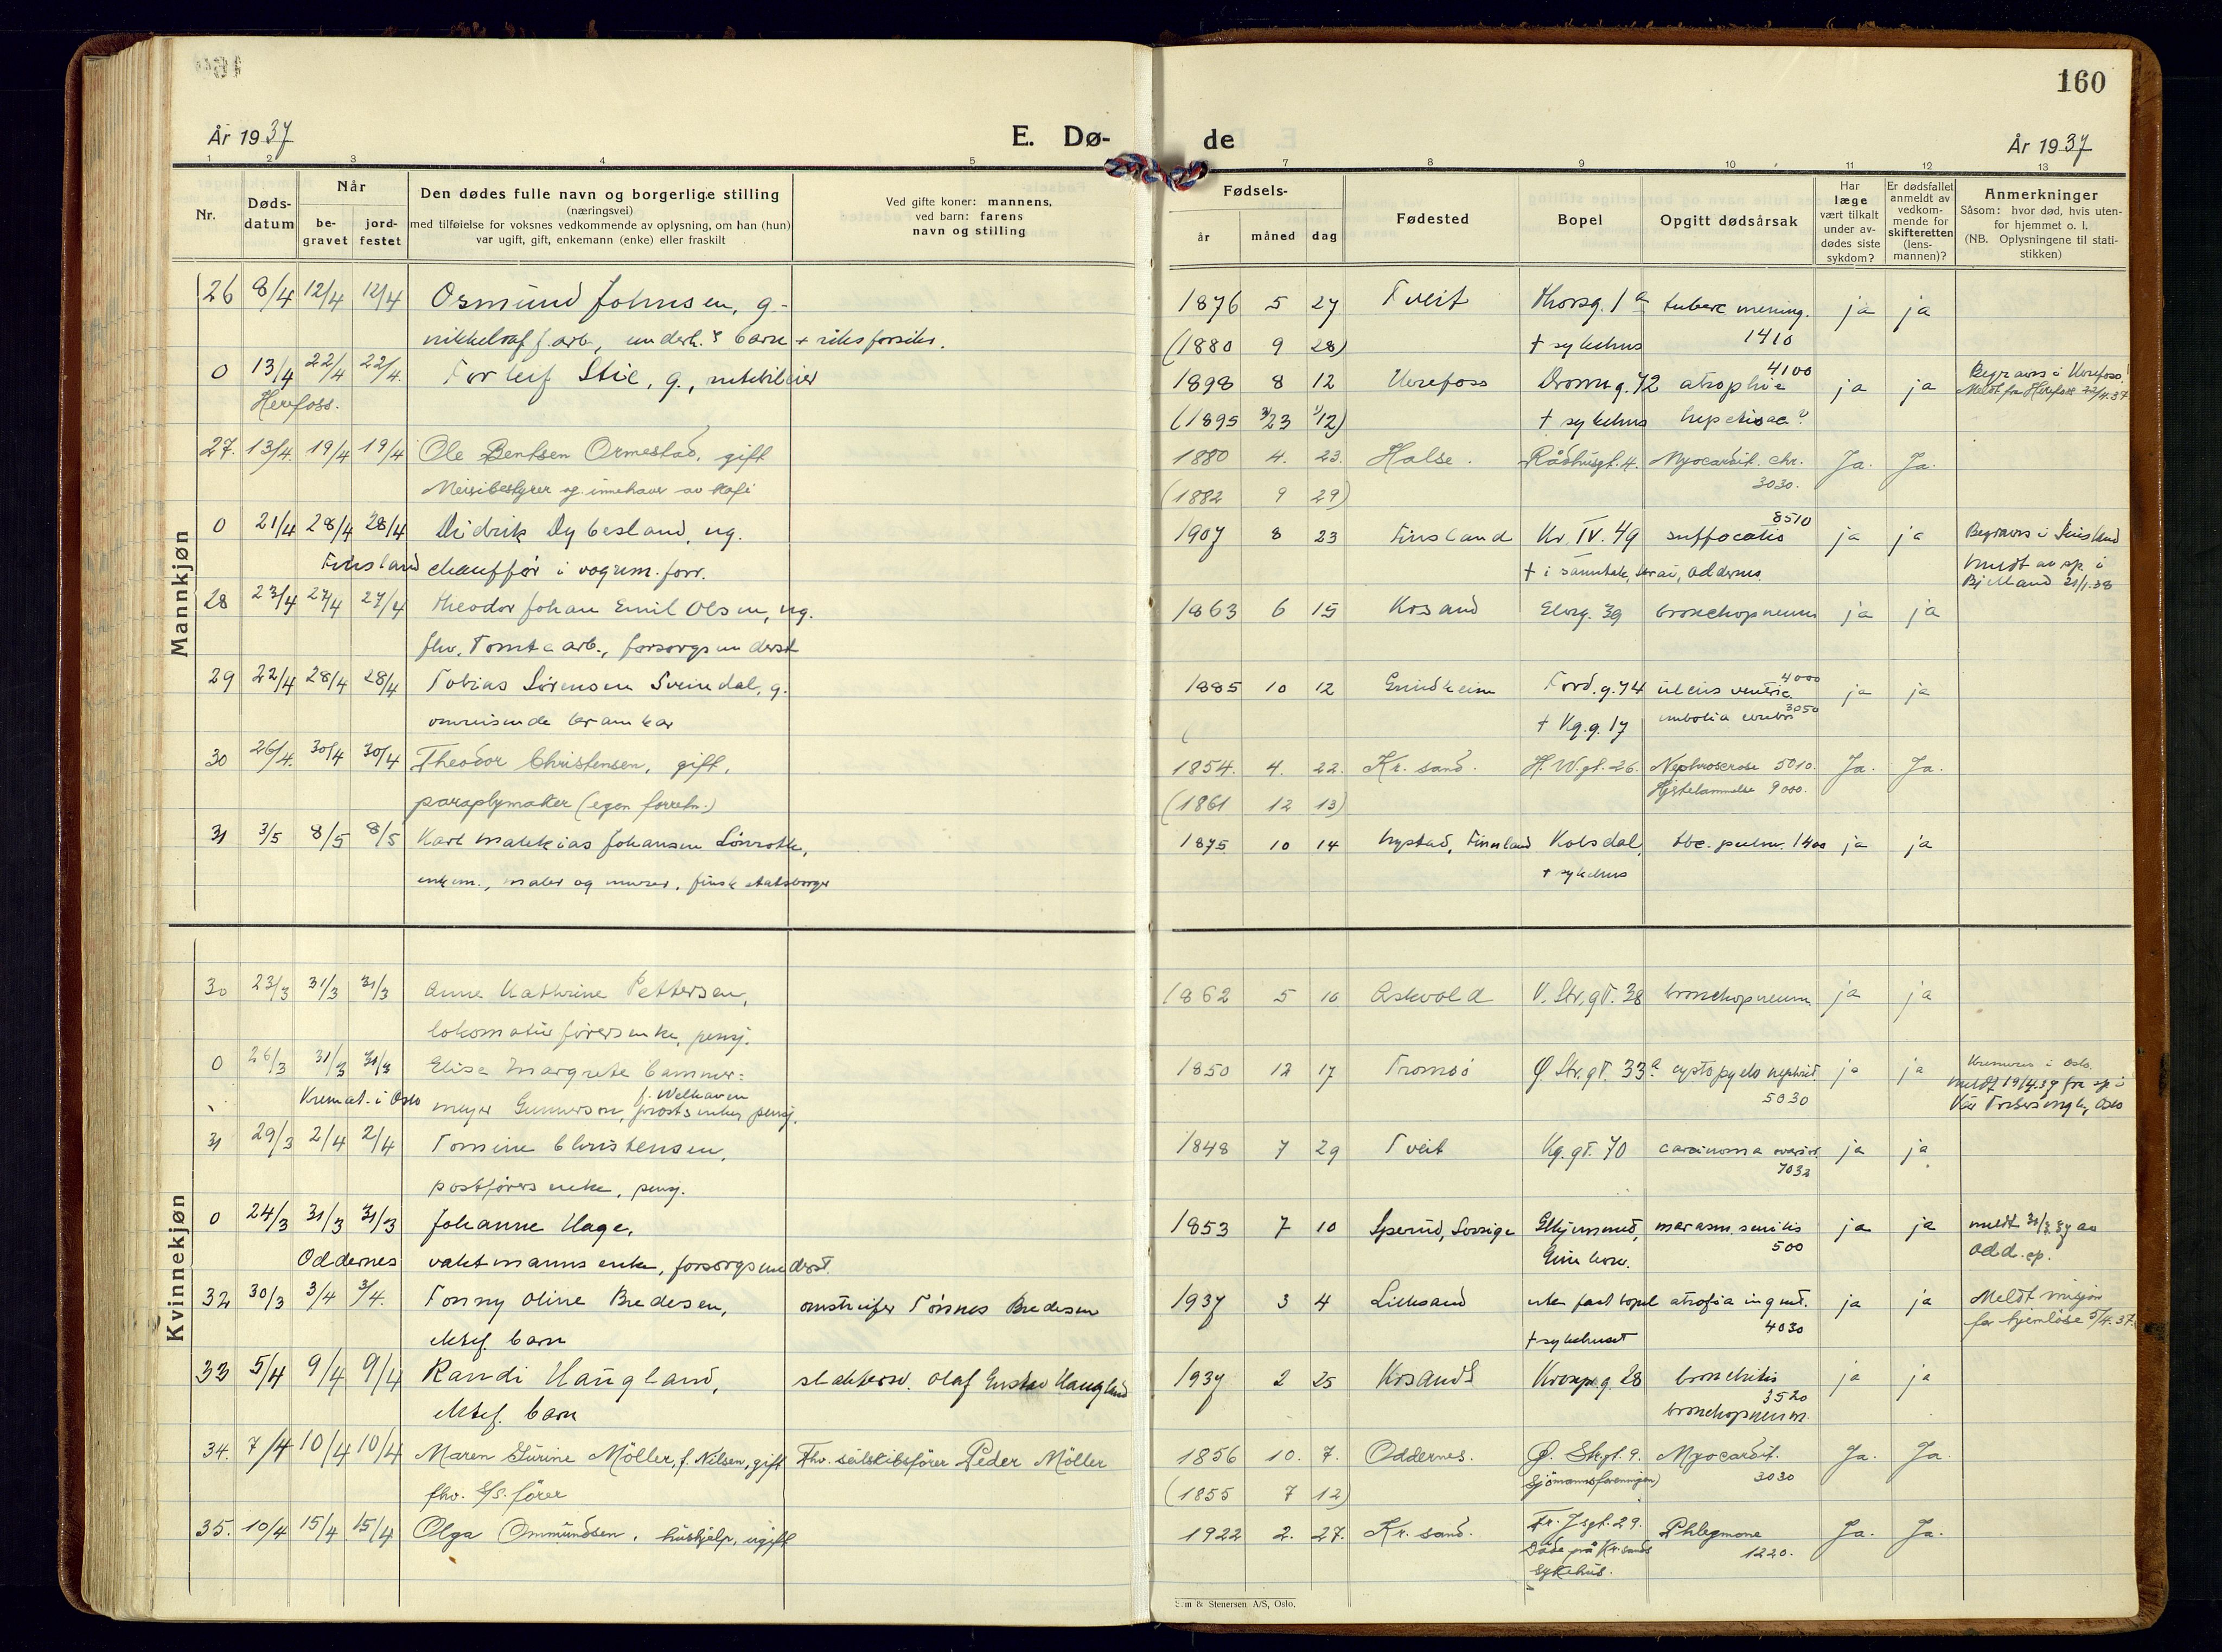 160
År 1937
E. Dø-
de
År 1937
1 2 3 4 5
7 8 9 10 11 12 13
Nr.
Døds-
datum
Når
be-
gravet
jord-
festet
Den dødes fulle navn og borgerlige stilling
(næringsvei)
med tilføielse for voksnes vedkommende av oplysning, om han (hun)
var ugift, gift, enkemann (enke) eller fraskilt
Ved gifte koner: mannens,
ved barn: farens
navn og stilling
Fødsels-
år måned dag
Fødested
Bopel
Opgitt dødsårsak
Har
læge
vært tilkalt
under av-
dødes siste
sykdom?
Er dødsfallet
anmeldt av
vedkom-
mende for
skifteretten
(lens-
mannen)?
Anmerkninger
Såsom: hvor død, hvis uten-
for hjemmet o. l.
(NB. Oplysningene til stati-
stikken)
Mannkjøn
26 8/4 12/4 12/4 Osmund Johnsen, g- 1876 5 27 Tveit Thorsg. 1a tuberc mening. ja ja
nikkelraf.f.arb., underh. barn + riksforsikr. (1880 9 28) + sykehus 1410
0 13/4 22/4 22/4 Torleif Stie, g., 1898 8 12 Herefoss Dronn.g. 72 atrophie 4100 ja ja Begraves i Herefoss.
Herefoss. (1895 + sykehus Meldt fra Herefoss 22/4.37
27. 13/4. 19/4 19/4 Ole Bentsen Ormestad, gift 1880 4. 23. Halse. Rådhusgt. 4. Myocardit. chr. Ja. Ja.
Meieribestyrer og innehaver av kafé (1882 9 29) 3030.
0 21/4 28/4 28/4 Didrik Dybesland, ug. 1907 8 23 Finsland Kr. IV. 49 suffocatio 8510 ja ja Begraves i Finsland
Finsland chauffør i + i Oddernes. meldt av sp. i
Bjelland 21/1.38
28 23/4 27/4 27/4 Theodor Johan Emil Olsen, ug. 1863 6 15 Krsand Elveg. 39 bronchopneum ja ja
fhv. Tomtearb., forsorgsunderst
29 22/4 28/4 28/4 Tobias Sørensen Sveindal, g. 1885 10 12 Grindheim Tord.g. 74 ulcus ventric. 4000 ja ja
omreisende kramkar ( + Kg.g. 17 embolia cerebri 3050
30 26/4. 30/4 30/4 Theodor Christensen, gift, 1854. 4. 22. Kr. sand. H. W.gt. 26. 5010. Ja. Ja.
paraplymaker (egen forretn.) (1861 12 13) Hjertelammelse 9000.
31 3/5 8/5 8/5 Karl Mathias Johansen Lönroth, 1875 10 14 Nystad, Finnland Kolsdal, tbc. pulm. 1400 ja ja
enkem., maler og murer, finsk statsborger + sykehus
Kvinnekjøn
30 23/3 31/3 31/3 Anne Kathrine Pettersen, 1862 5 10 Askvold V. Str.gt. 38 bronchopneum ja ja
lokomotivførersenke, pensj.
0 26/3 31/3 31/3 Elise Margrete Cammer- 1850 12 17 Tromsø Ø. Str.gt. 33a cystopyelonephrit ja ja Kremeres i Oslo.
Kremat. i Oslo meyer Gunnerson, f. Welhaven prostsenke, pensj. 5030 meldt 19/4.37 fra sp. i
Vår Frelsers mgh., Oslo
31 29/3 2/4 2/4 Tomine Christensen, 1848 7 29 Tveit Kg.gt. 70 carcinoma ovarior. ja ja
postførers enke, pensj. 7032
0 24/3 31/3 31/3 Johanne Hage, 1853 7 10 Sperud, Sverige marasm. senilis ja ja meldt 31/3.37 av
Oddernes vaktmanns enke, forsorgsunderst. 500 Odd. sp.
32 30/3 3/4 3/4. Tonny Oline Bredesen, omstreifer Tønnes Bredesen 1937 3 4 Lillesand uten fast bopel atrofia ja ja Meldt misjon
ektef. barn + sykehuset 4030 for hjemløse 5/4.37.
33 5/4 9/4 9/4 Randi Haugland, slaktersv. Olaf Gustav Haugland 1937 2 25 Krsand Kronpr.g. 28 bronchitis ja ja
ektef. barn 3520
bronchopneum.
34. 7/4 10/4 10/4 Maren Gurine Möller, f. Nilsen, gift Fhv. seilskibsfører Peder Möller 1856 10. 7. Oddernes. Ø. Str.gt. 9. Myocardit. Ja. Ja.
fhv. S/S. fører (1855 7 12) Sjømannsforeningen) 3030
35. 10/4 15/4. 15/4 Olga Ommundsen, hushjelp, ugift 1922 2. 27. Kr. sand. Fr. 29. Phlegmone Ja. Ja.
Døde på Kr.sands 1220.
Sykehus.
& Stenersen A/S, Oslo.